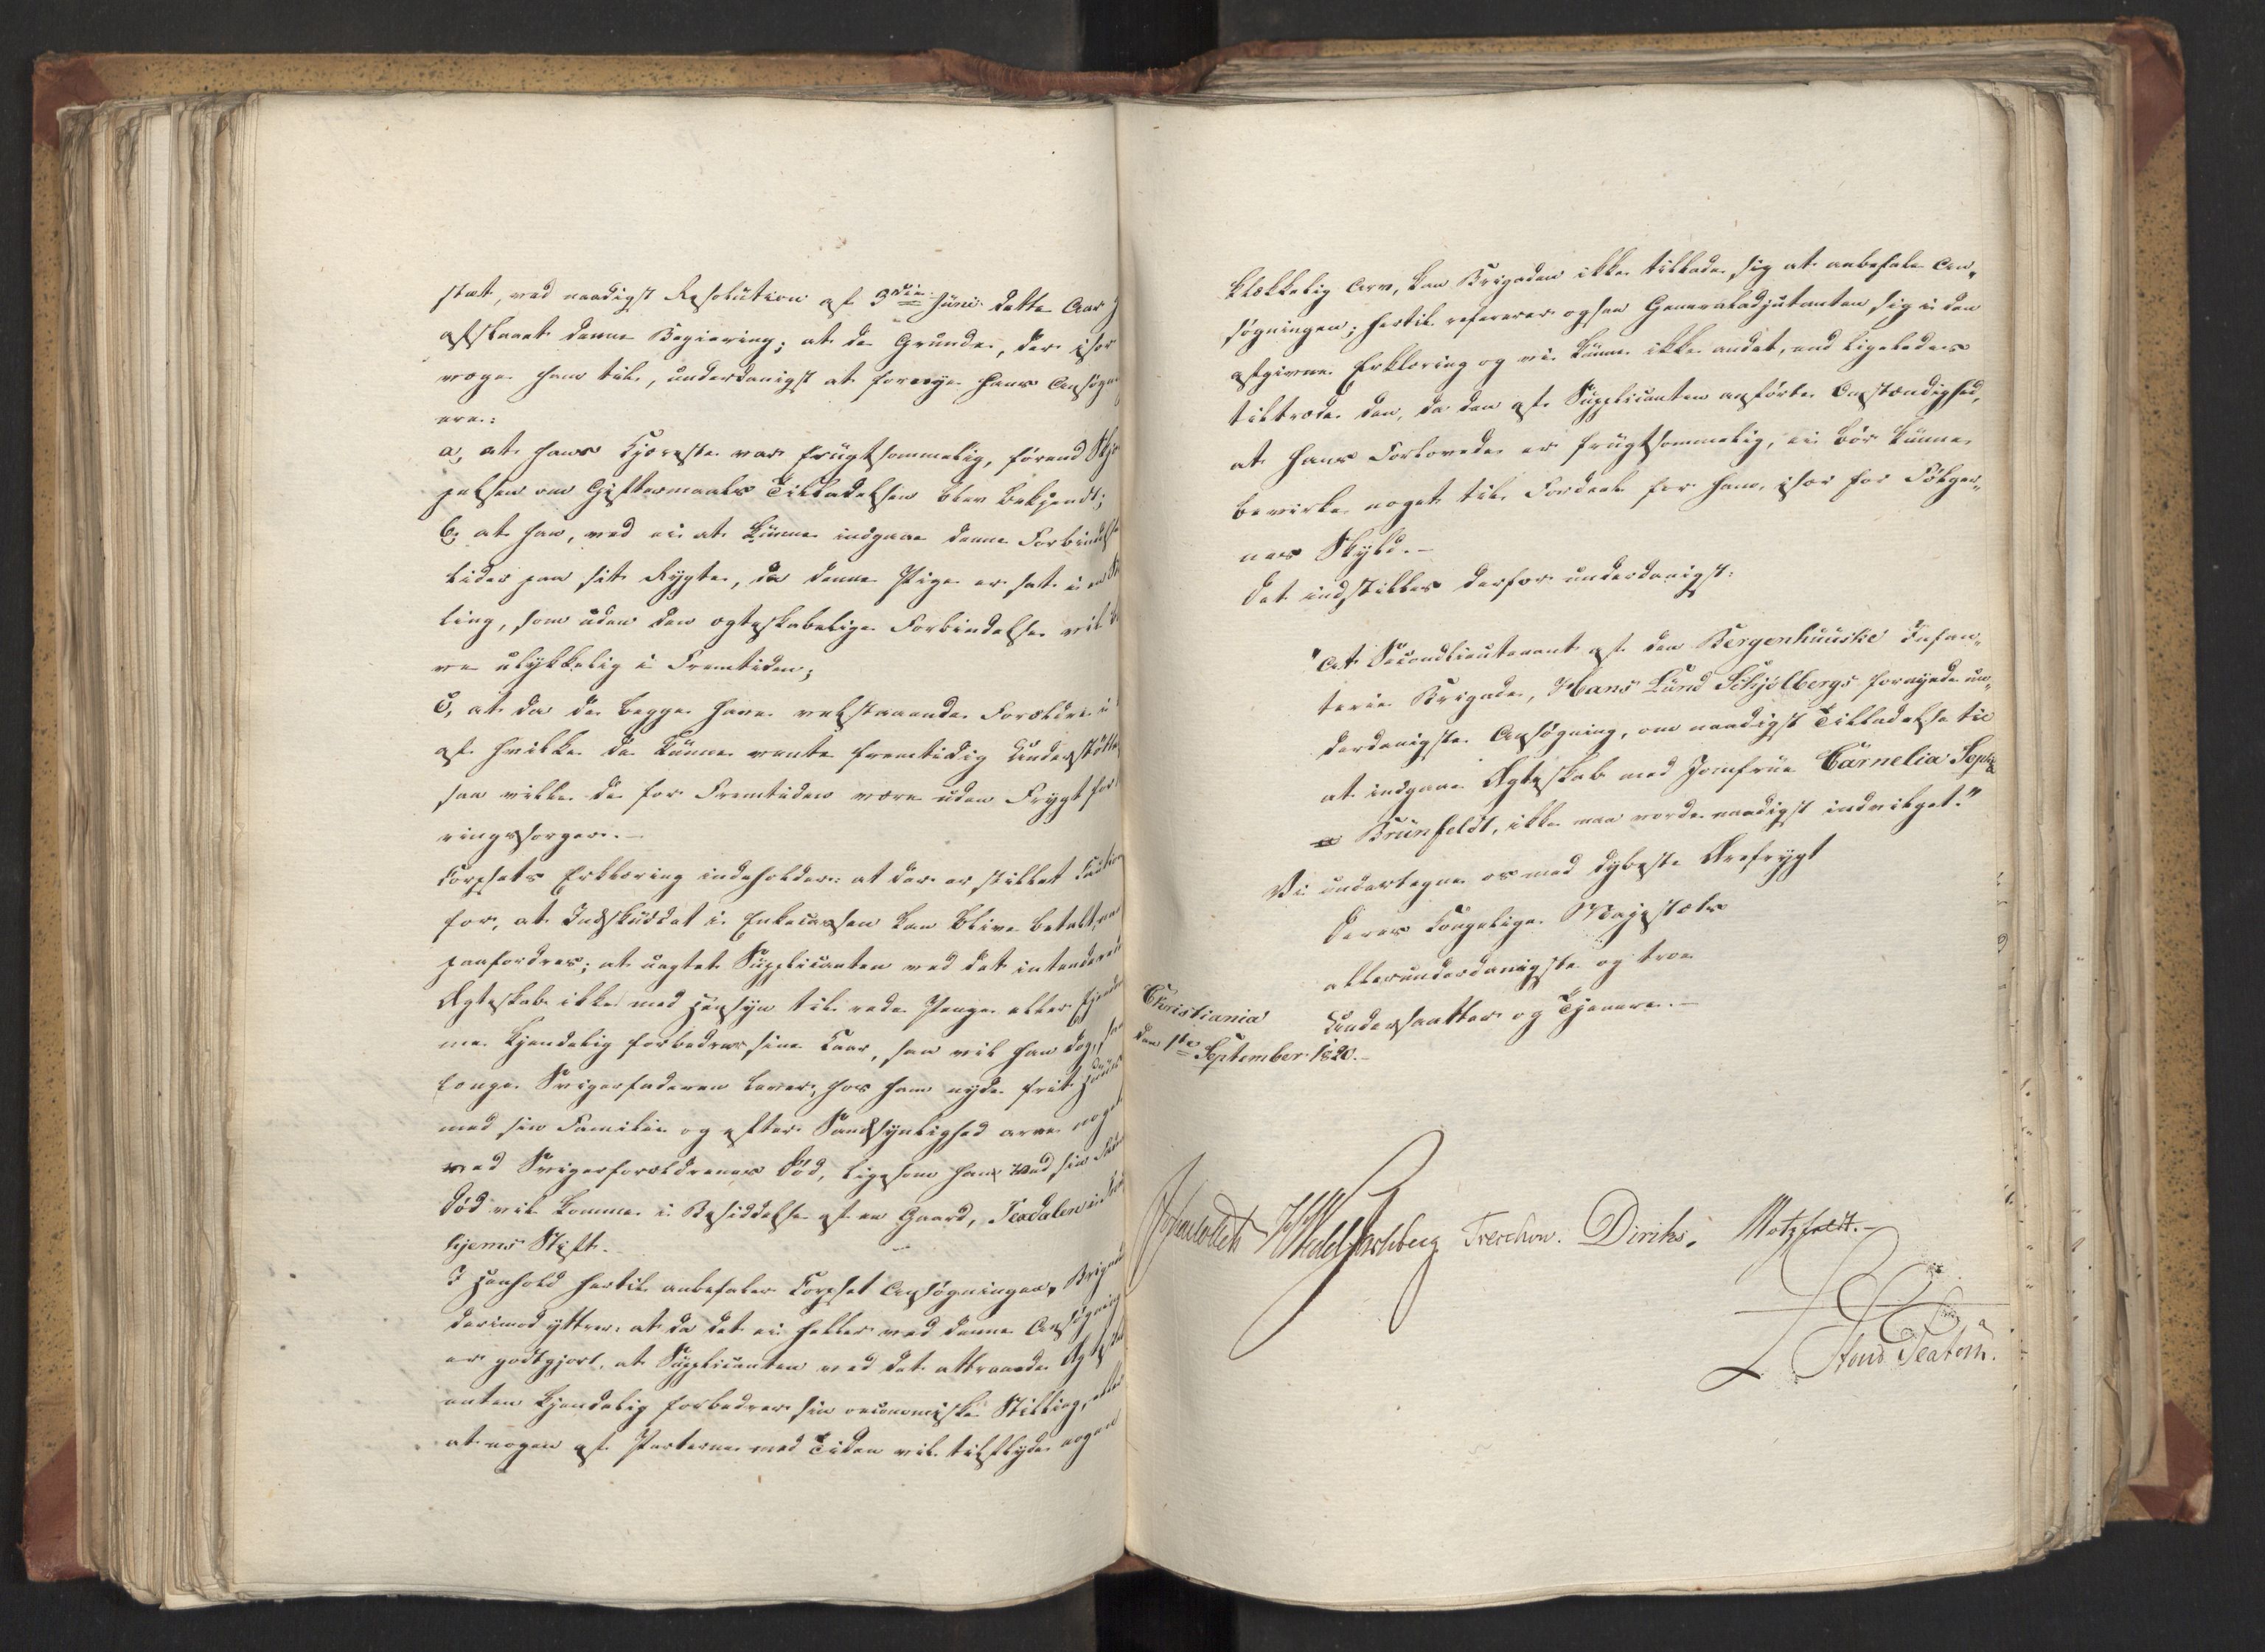 stæt, ved naadigst Resolution af 3die Juni dette Aar
afslaaet denne Begjæring; at de Grunde, der især
væge ham til, underdanigst at fornye hans Ansøgn
ere:
a, at hans Kjæreste var frugtsommelig, førend
pelsen om Giftermaals Tilladelsen blev bekjendt;
b, at han, ved ei at kunne indgaae denne Forbindelse
lider paa sit Rygte, da denne Pige er sat i en
ling, som uden den ægteskabelige Forbindelse vil
re ulykkelig i Fremtiden;
c, at da de begge have velstaaende Forældre
af hvilke de kunne vente fremtidig Understøtte
saa ville de for Fremtiden være uden Frygt for
ringssorger.-
Corpsets Erklæring indeholder: at der er stillet Caution
for, at Indskuddet i Enkecassen kan blive betalt, naar
paafordres; at uagtet Supplicanten ved det intenderede
Ægteskab ikke med Hensyn til rede Penge eller Eiendom
me kjendelig forbedrer sine Kaar, saa vil han dog, saa
længe Svigerfaderen lever, hos ham nyde frit Huus
med sin Familie og efter Sandsynlighed arve noget
ved Svigerforældrenes Død, ligesom han ved sin Faders
Død vil komme i Besiddelse af en Gaard, Teadalen i
hjems Stift.
I Henhold hertil anbefaler Corpset Ansøgningen, Brigaden
derimod yttrer: at da det ei heller ved denne Ansøgning
er godtgjort, at Supplicanten ved det attraaede Ægteskab
enten kjendelig forbedrer sin oeconomiske Stilling, eller
at nogen af Parterne med Tiden vil tilflyde nogen
klækkelig Arv, kan Brigaden ikke tillade sig at anbefale An-
søgningen; hertil refererer ogsaa Generaladjutanten sig i den
afgivne Erklæring og vi kunne ikke andet, end ligeledes
tiltræde den, da den af Supplicanten anførte Omstændighed,
at hans Forlovede er frugtsommelig, ei bør kunne
bevirke noget til Fordeel for ham, især for Følger-
nes Skyld.-
Det indstilles derfor underdanigst:
"At Secondlieutenant af den Bergenhuuske Infan-
terie Brigade, Hans Lund Schjølbergs fornyede un-
derdanigste Ansøgning, om naadigst Tilladelse til
at indgaae Ægteskab med Jomfrue Carnelia Sophi
a Brünfeldt, ikke maa vorde naadigst indvilget."
Vi undertegne os med dybeste Ærefrygt
Deres Kongelige Majestæts
allerunderdanigste og troe
Undersaatter og Tjenere.-
Christiania
den 1te September 1820.-
Treschow. Diriks. Motzfeldt.-